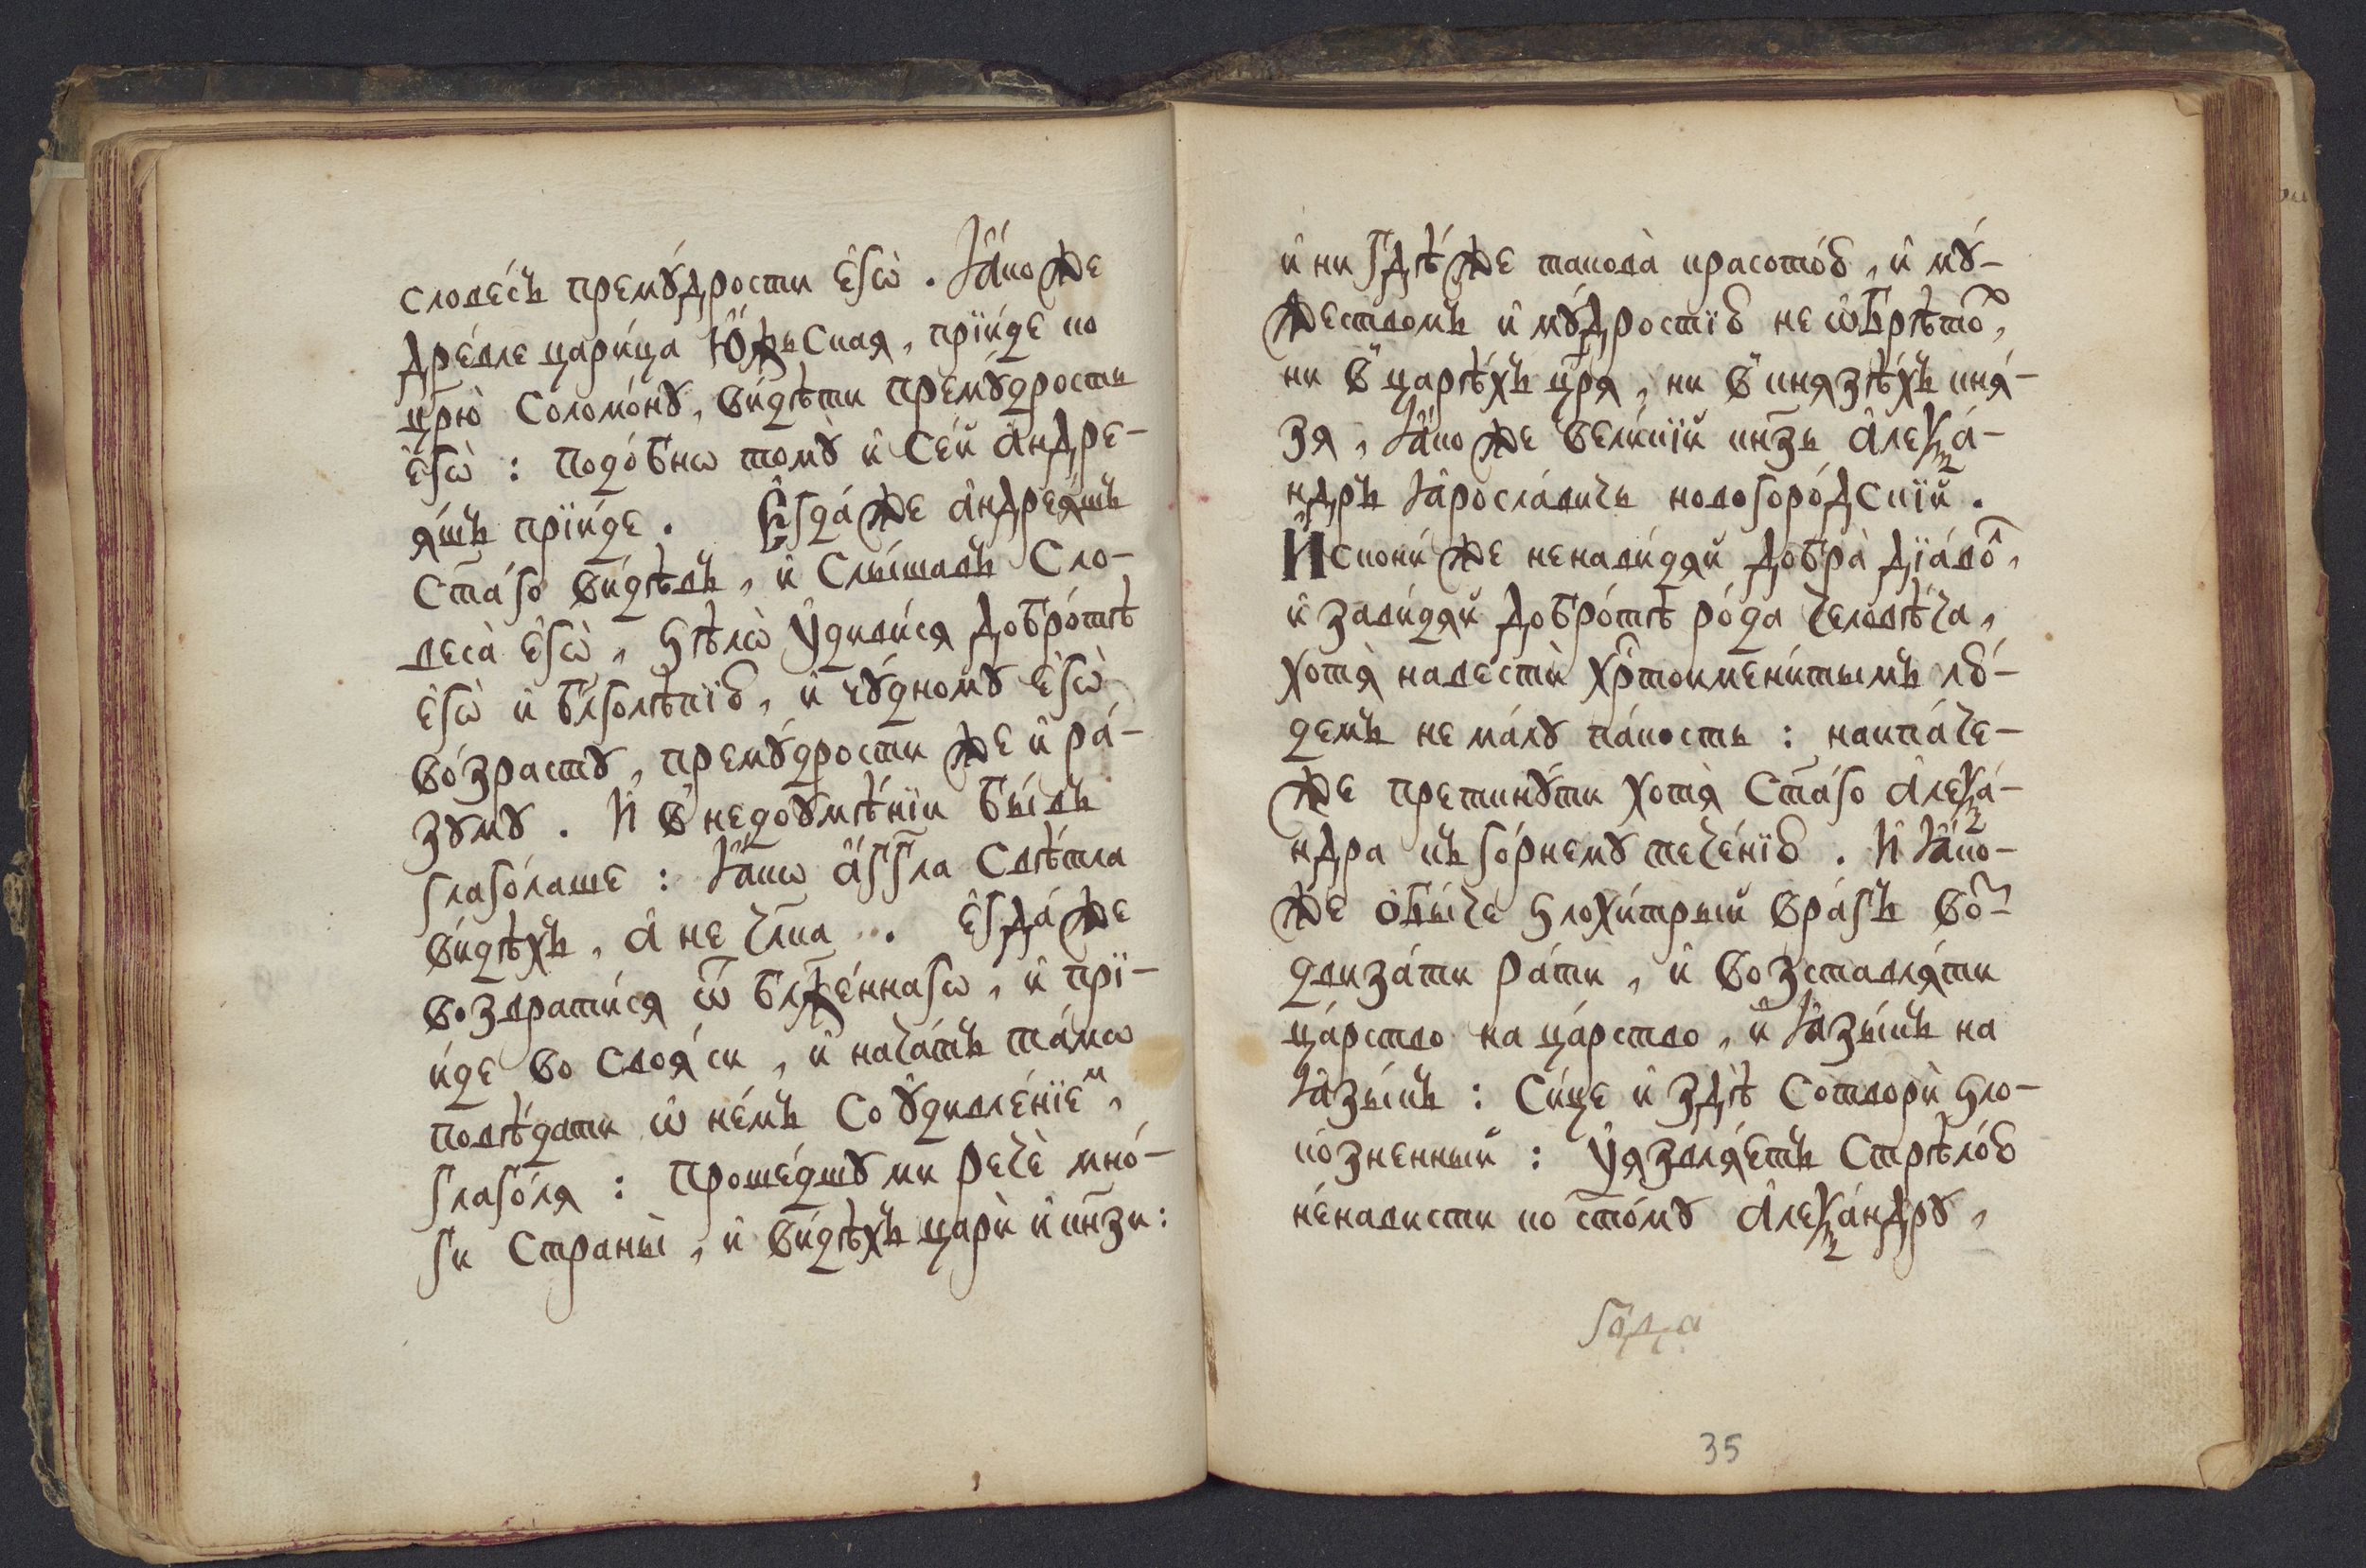 словесъ премꙋ́дрости є҆гѡ̀ . Ꙗ҆́коже
дре́вле цари́ца Ю҆́жьская , прїи́де ко
цр҃ю̀ Соломо́нꙋ , ви́дѣти премꙋ́дрость
є҆гѡ̀ : подо́бнѡ томꙋ̀ и҆ се́й а҆ндре-
я́шъ прїи́де . Є҆гда́же а҆ндрея́шъ
ст҃а́го ви́дѣвъ , и҆ слы́шавъ сло-
веса̀ є҆гѡ̀ , ѕѣлѡ̀ ᲂу҆диви́ся добро́тѣ
є҆гѡ̀ и҆ бл҃голѣ́пїю , и҆ чꙋ́дномꙋ є҆гѡ̀
во́зрастꙋ , премꙋ́дрости же и҆ ра́-
зꙋмꙋ . И҆ в̾ недоꙋмѣ́нїи бы́въ
глаго́лаше : Ꙗ҆́кѡ а҆́гг҃ла свѣ́тла
ви́дѣхъ , а҆ не чл҃ка . Є҆гда́же
возврати́ся ѿ бл҃же́ннагѡ , и҆ прї-
и́де во своя́си , и҆ нача́тъ та́мѡ
повѣ́дати ѡ҆ не́мъ со ᲂу҆дивле́нїем ,
глаго́ля : Проше́дшꙋ ми речѐ мнѡ́-
ги страны̀ , и҆ ви́дѣхъ царѝ и҆ кн҃зи :
и҆ ни гдѣ́же такова̀ красото́ю , и҆ мꙋ́-
жествомъ и҆ мꙋ́дростїю не ѡ҆брѣто́х ,
ни в̾ царѣ́хъ цр҃я , ни в̾ князѣ́хъ кня́-
зя , Ꙗ҆́коже вели́кїй кн҃зь а҆леѯа́-
ндръ Ꙗ҆росла́вичь новогоро́дскїй .
И҆скони́же ненави́дяй добра̀ дїа́во̂ ,
и҆ зави́дяй добро́тѣ ро́да человѣ́ча ,
хотя̀ навестѝ хр҃тоимени́тымъ лю́-
демъ не ма́лꙋ па́кость : наипа́че-
же преткнꙋ́ти хотя̀ ст҃а́го а҆леѯа́-
ндра къ го́рнемꙋ тече́нїю . И҆ Ꙗ҆́ко-
же ѻ҆бы́че ѕлохи́трый вра́гъ воз-
двиза́ти ра́ти , и҆ возставля́ти
ца́рство на ца́рство , и҆ Ꙗ҆зы́къ на
Ꙗ҆зы́къ : Си́це и҆ здѣ̀ сотворѝ ѕло-
ко́зненный : ᲂу҆язвля́етъ стрѣло́ю
не́нависти по ст҃о́мꙋ а҆леѯа́ндрꙋ ,
35